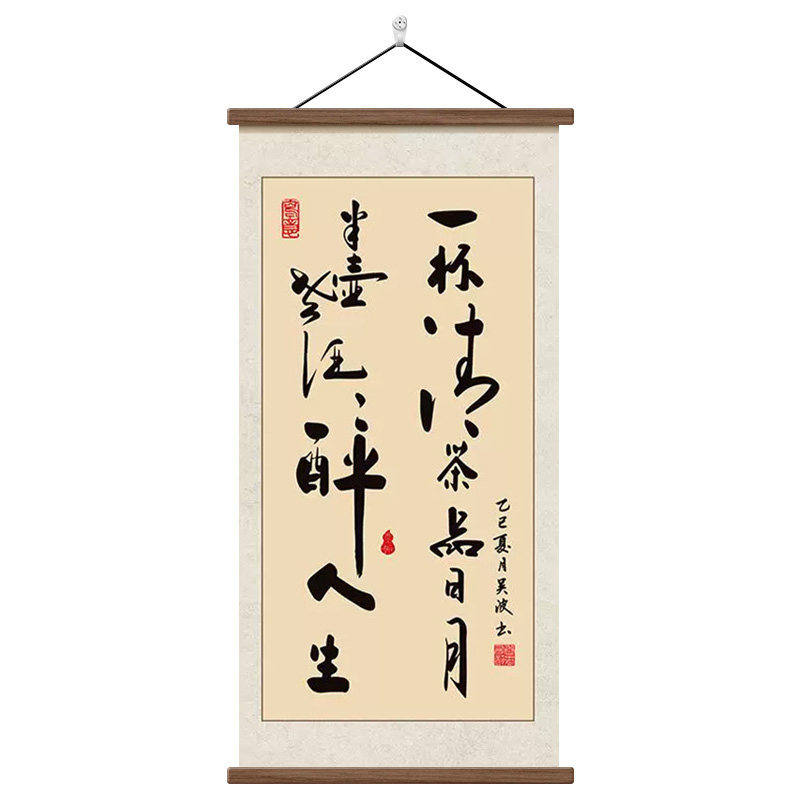 一杯清茶品日月
半壶老酒醉人生
乙巳夏月吴波书